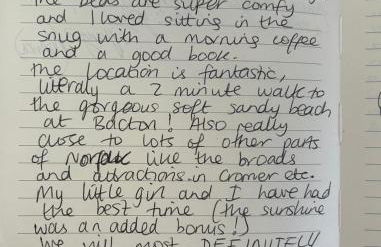 The beds are super comfy
and I loved sitting in the
snug with a morning coffee
and a good book.
The location is fantastic,
literaly a 2 minute walk to
the gorgeous soft sandy beach
at Bacton! Also really
close to lots of other parts
of Norfolk like the broads
and attractions in Cromer etc.
My little girl and I have had
the best time (the sunshine
was an added bonus!)
We will most DEFINITELY